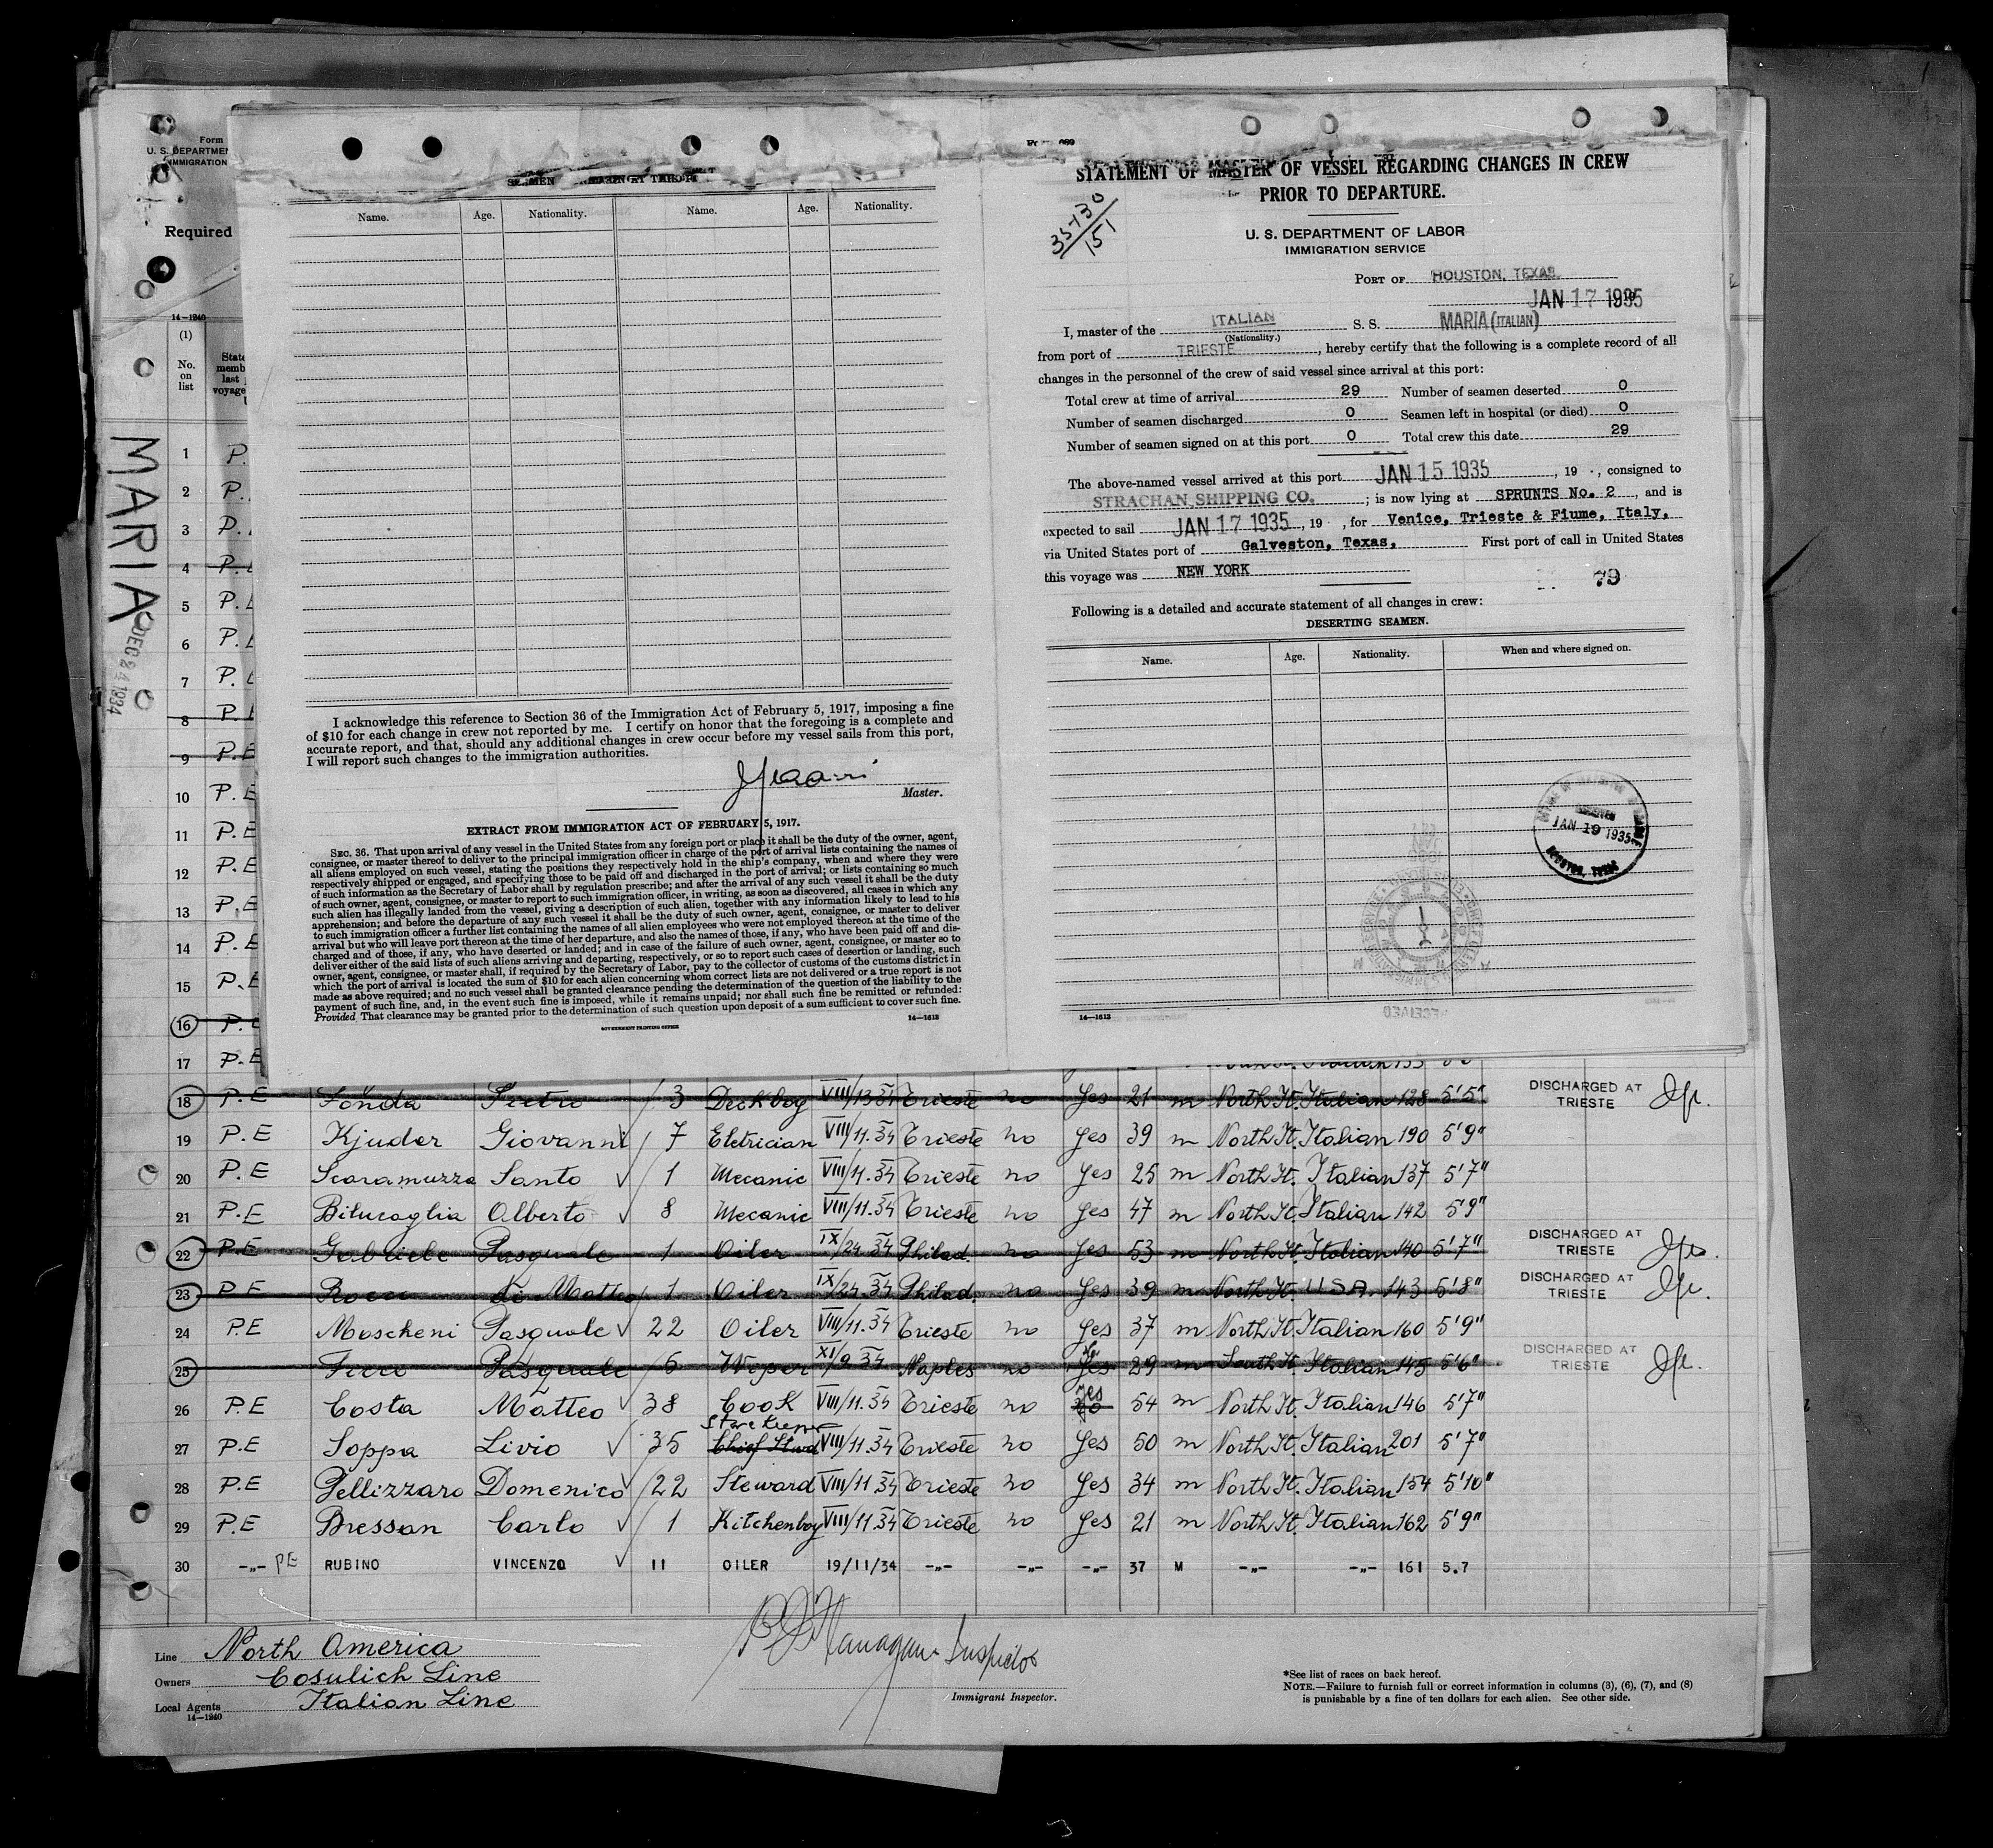 Form
U. S. DEPARTMEN
IMMIGRATION
Required
14—1240
(1)
No.
on
list
State
memb
last
voyage
MARIA
DEC 24 1934
Name. Age. Nationality. Name. Age. Nationality.
I acknowledge this reference to Section 36 of the Immigration Act of February 5, 1917, imposing a fine
of $10 for each change in crew not reported by me. I certify on honor that the foregoing is a complete and
accurate report, and that, should any additional changes in crew occur before my vessel sails from this port,
I will report such changes to the immigration authorities.
Master.
EXTRACT FROM IMMIGRATION ACT OF FEBRUARY 5, 1917.
SEC. 36. That upon arrival of any vessel in the United States from any foreign port or place it shall be the duty of the owner, agent,
consignee, or master thereof to deliver to the principal immigration officer in charge of the port of arrival lists containing the names of
all aliens employed on such vessel, stating the positions they respectively hold in the ship's company, when and where they were
respectively shipped or engaged, and specifying those to be paid off and discharged in the port of arrival; or lists containing so much
of such information as the Secretary of Labor shall by regulation prescribe; and after the arrival of any such vessel it shall be the duty
of such owner, agent, consignee, or master to report to such immigration officer, in writing, as soon as discovered, all cases in which any
such alien has illegally landed from the vessel, giving a description of such alien, together with any information likely to lead to his
apprehension; and before the departure of any such vessel it shall be the duty of such owner, agent, consignee, or master to deliver
to such immigration officer a further list containing the names of all alien employees who were not employed thereon at the time of the
arrival but who will leave port thereon at the time of her departure, and also the names of those, if any, who have been paid off and dis-
charged and of those, if any, who have deserted or landed; and in case of the failure of such owner, agent, consignee, or master so to
deliver either of the said lists of such aliens arriving and departing, respectively, or so to report such cases of desertion or landing, such
owner, agent, consignee, or master shall, if required by the Secretary of Labor, pay to the collector of customs of the customs district in
which the port of arrival is located the sum of $10 for each alien concerning whom correct lists are not delivered or a true report is not
made as above required; and no such vessel shall be granted clearance pending the determination of the question of the liability to the
payment of such fine, and, in the event such fine is imposed, while it remains unpaid; nor shall such fine be remitted or refunded:
Provided, That clearance may be granted prior to the determination of such question upon deposit of a sum sufficient to cover such fine.
GOVERNMENT PRINTING OFFICE 14—1613
STATEMENT OF MASTER OF VESSEL REGARDING CHANGES IN CREW
PRIOR TO DEPARTURE.
35-130
151
U. S. DEPARTMENT OF LABOR
IMMIGRATION SERVICE
PORT OF HOUSTON, TEXAS.
JAN 17 1935
I, master of the ITALIAN S. S. MARIA (ITALIAN)
(Nationality.)
from port of TRIESTE, hereby certify that the following is a complete record of all
changes in the personnel of the crew of said vessel since arrival at this port:
Total crew at time of arrival 29 Number of seamen deserted 0
Number of seamen discharged 0 Seamen left in hospital (or died) 0
Number of seamen signed on at this port 0 Total crew this date 29
The above-named vessel arrived at this port JAN 15 1935, 19 , consigned to
STRACHAN SHIPPING CO. ; is now lying at SPRUNTS No. 2, and is
expected to sail JAN 17 1935, 19 , for Venice, Trieste & Fiume, Italy,
via United States port of Galveston, Texas, First port of call in United States
this voyage was NEW YORK
79
Following is a detailed and accurate statement of all changes in crew:
DESERTING SEAMEN.
Name. Age. Nationality. When and where signed on.
JAN 19 1935
HOUSTON, TEXAS
RECEIVED
14—1613
1 P.
2 P.
3 P.
4 P.
5 P.
6 P.
7 P.
8 P.
9 P.E
10 P.E
11 P.E
12 P.E
13 P.E
14 P.E
15 P.E
16 P.
17 P.E
18 P.E Fonda Pietro 3 Deckboy VIII/13 34 Trieste no yes 21 m North It. Italian 128 5'5" DISCHARGED AT TRIESTE
19 P.E Kjuder Giovanni 7 Eletrician VIII/11.34 Trieste no yes 39 m North It. Italian 190 5'9"
20 P.E Scaramuzza Santo 1 Mecanic VIII/11.34 Trieste no yes 25 m North It. Italian 137 5'7"
21 P.E Bilucaglia Alberto 8 Mecanic VIII/11.34 Trieste no yes 47 m North It. Italian 142 5'9"
22 P.E Gabriele Pasquale 1 Oiler IX/24.34 Philad. no yes 53 m North It. Italian 140 5'7" DISCHARGED AT TRIESTE
23 P.E Rocco Di Matteo 1 Oiler IX/24.34 Philad. no yes 39 m North It. USA. 143 5'8" DISCHARGED AT TRIESTE
24 P.E Moscheni Pasquale 22 Oiler VIII/11.34 Trieste no yes 37 m North It. Italian 160 5'9"
25 Pasquale 6 Wiper XI/2 34 Naples no yes 29 m South It. Italian 145 5'6" DISCHARGED AT TRIESTE
26 P.E Costa Matteo 38 Cook VIII/11.34 Trieste no yes 54 m North It. Italian 146 5'7"
27 P.E Soppa Livio 35 Chief Stwd Store Keeper VIII/11.34 Trieste no yes 50 m North It. Italian 201 5'7"
28 P.E Pellizzaro Domenico 22 Steward VIII/11.34 Trieste no yes 34 m North It. Italian 154 5'10"
29 P.E Bressan Carlo 1 Kitchenboy VIII/11.34 Trieste no yes 21 m North It. Italian 162 5'9"
30 -„- PE RUBINO VINCENZO 11 OILER 19/11/34 -„- -„- -„- 37 M -„- -„- 161 5.7
Line North America
Owners Cosulich Line
Local Agents Italian Line
14—1240
Inspector
Immigrant Inspector.
*See list of races on back hereof.
NOTE.—Failure to furnish full or correct information in columns (3), (6), (7), and (8)
is punishable by a fine of ten dollars for each alien. See other side.